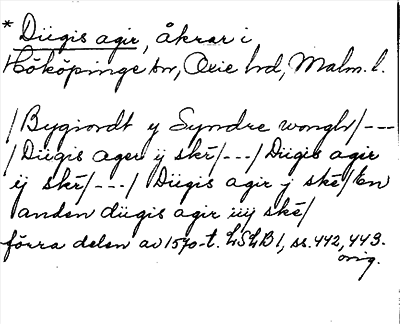 * Diigis agir, åkrar i
Hököpinge sn, Oxie hd, Malm. l.
/Bygiordt y Syndre wongh/---
/Diigis ager ij skē/---/Diigis agir
ij skē/---/ Diigis agir j skē/En
anden diigis agir iiij skē/
förra delen av 1570-t. LSLB 1, ss. 442, 443.
orig.